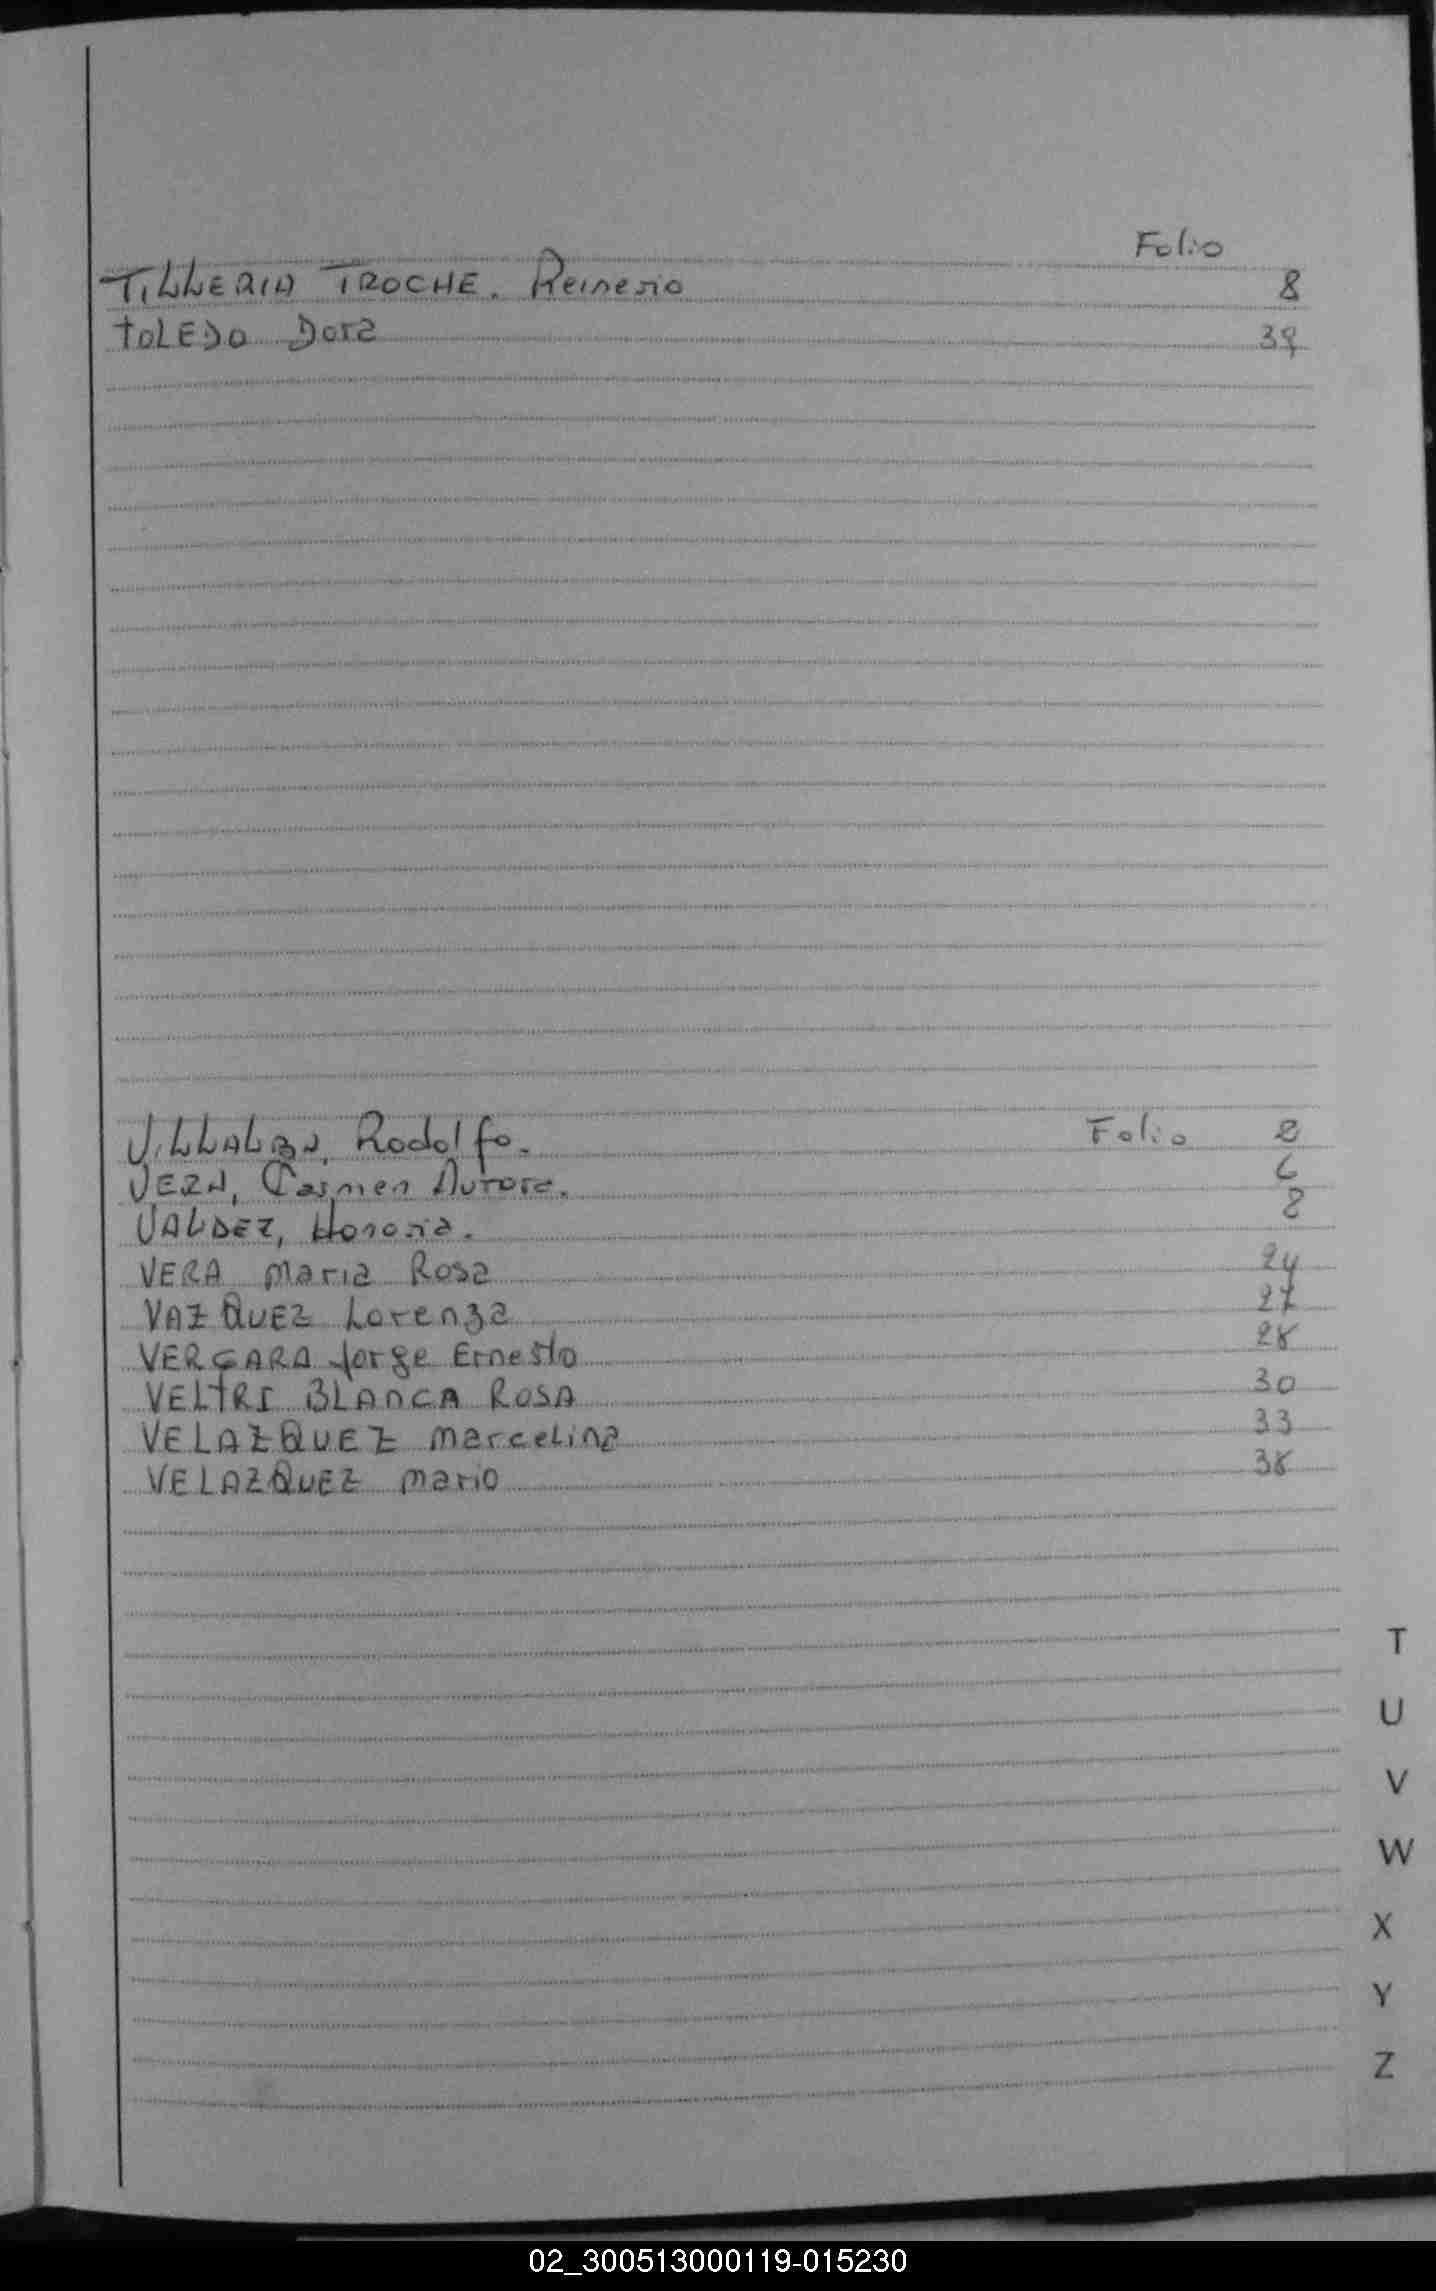 Folio
TILLERIA TROCHE. Reinerio 8
TOLEDO Dora 39
VILLALBA, Rodolfo. Folio 2
VERA, Carmen Aurora. 6
VALDEZ, Honoria. 8
VERA Maria Rosa 24
VAZQUEZ Lorenza 27
VERGARA Jorge Ernesto 28
VELTRI BLANCA ROSA 30
VELAZQUEZ Marcelina 33
VELAZQUEZ Mario 38
T
U
V
W
X
Y
Z
02_300513000119-015230